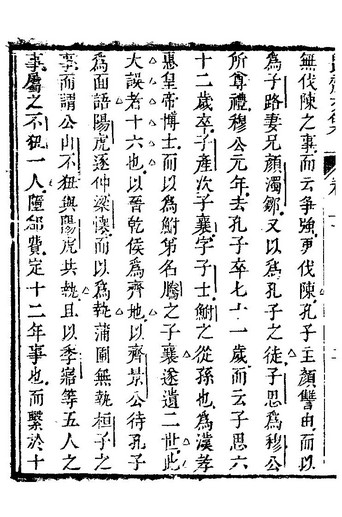 無伐陳之事而云爭強更伐陳孔子主顏讐由而以
為子路妻兄顏濁鄒又以為孔子之徒子思為穆公
所尊禮穆公元年去孔子卒七十一歲而云子思六
十二歲卒子產次子襄字子士鮒之從孫也為漢孝
惠皇帝博士而以為鮒弟名騰之子襄遂遺二世此
大誤者十六也以晉乾侯為齊地以齊景公待孔子
為面語陽虎逐仲梁懷而以為執蒲圃無執桓子之
事而謂公山不狃與陽虎共執且以季寤等五人之
事屬之不狃一人墮郈費定十二年事也而繫於十